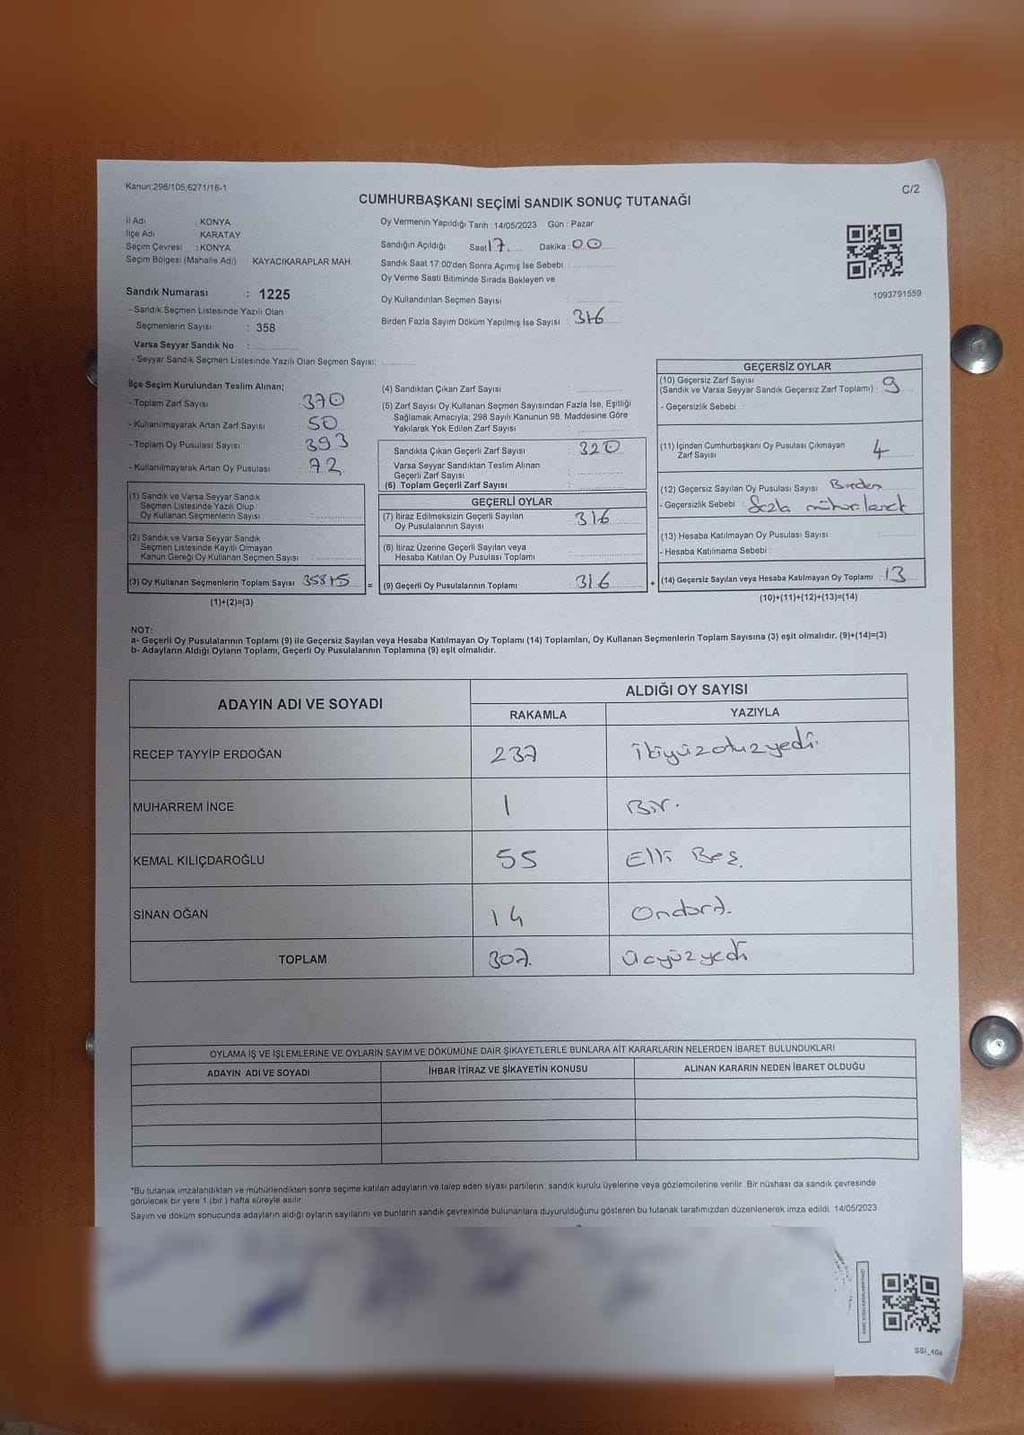 Kanun;298/105,6271/16-1
C/2
CUMHURBAŞKANI SEÇİMİ SANDIK SONUÇ TUTANAĞI
İl Adı : KONYA
İlçe Adı : KARATAY
Seçim Çevresi : KONYA
Seçim Bölgesi (Mahalle Adı) KAYACIKARAPLAR MAH.
Sandık Numarası : 1225
- Sandık Seçmen Listesinde Yazılı Olan
Seçmenlerin Sayısı : 358
Varsa Seyyar Sandık No :
- Seyyar Sandık Seçmen Listesinde Yazılı Olan Seçmen Sayısı:
Oy Vermenin Yapıldığı Tarih : 14/05/2023 Gün : Pazar
Sandığın Açıldığı Saat 17. Dakika : 00
Sandık Saat 17.00'den Sonra Açımış İse Sebebi :
Oy Verme Saati Bitiminde Sırada Bekleyen ve
Oy Kullandırılan Seçmen Sayısı :
Birden Fazla Sayım Döküm Yapılmış İse Sayısı : 316
1093791559
İlçe Seçim Kurulundan Teslim Alınan;
- Toplam Zarf Sayısı : 370
- Kullanılmayarak Artan Zarf Sayısı : 50
- Toplam Oy Pusulası Sayısı : 393
- Kullanılmayarak Artan Oy Pusulası : 72
(1) Sandık ve Varsa Seyyar Sandık
Seçmen Listesinde Yazılı Olup
Oy Kullanan Seçmenlerin Sayısı :
(2) Sandık ve Varsa Seyyar Sandık
Seçmen Listesinde Kayıtlı Olmayan
Kanun Gereği Oy Kullanan Seçmen Sayısı :
(3) Oy Kullanan Seçmenlerin Toplam Sayısı
(1)+(2)=(3)
(4) Sandıktan Çıkan Zarf Sayısı :
(5) Zarf Sayısı Oy Kullanan Seçmen Sayısından Fazla İse, Eşitliği
Sağlamak Amacıyla; 298 Sayılı Kanunun 98. Maddesine Göre
Yakılarak Yok Edilen Zarf Sayısı :
Sandıkta Çıkan Geçerli Zarf Sayısı : 320
Varsa Seyyar Sandıktan Teslim Alınan
Geçerli Zarf Sayısı :
(6) Toplam Geçerli Zarf Sayısı :
GEÇERLİ OYLAR
(7) İtiraz Edilmeksizin Geçerli Sayılan
Oy Pusulalarının Sayısı : 316
(8) İtiraz Üzerine Geçerli Sayılan veya
Hesaba Katılan Oy Pusulası Toplamı :
= (9) Geçerli Oy Pusulalarının Toplamı : 316
GEÇERSİZ OYLAR
(10) Geçersiz Zarf Sayısı
(Sandık ve Varsa Seyyar Sandık Geçersiz Zarf Toplamı) : 9
- Geçersizlik Sebebi :
(11) İçinden Cumhurbaşkanı Oy Pusulası Çıkmayan
Zarf Sayısı : 4
(12) Geçersiz Sayılan Oy Pusulası Sayısı : Birden
- Geçersizlik Sebebi : fazla
(13) Hesaba Katılmayan Oy Pusulası Sayısı :
- Hesaba Katılmama Sebebi :
+ (14) Geçersiz Sayılan veya Hesaba Katılmayan Oy Toplamı : 13
(10)+(11)+(12)+(13)=(14)
NOT:
a- Geçerli Oy Pusulalarının Toplamı (9) ile Geçersiz Sayılan veya Hesaba Katılmayan Oy Toplamı (14) Toplamları, Oy Kullanan Seçmenlerin Toplam Sayısına (3) eşit olmalıdır. (9)+(14)=(3)
b- Adayların Aldığı Oyların Toplamı, Geçerli Oy Pusulalarının Toplamına (9) eşit olmalıdır.
ADAYIN ADI VE SOYADI ALDIĞI OY SAYISI
RAKAMLA YAZIYLA
RECEP TAYYİP ERDOĞAN 237 ikiyüzotuzyedi.
MUHARREM İNCE 1 Bir.
KEMAL KILIÇDAROĞLU 55 Elli Beş.
SİNAN OĞAN 14 Ondört.
TOPLAM 307. Üçyüzyedi
OYLAMA İŞ VE İŞLEMLERİNE VE OYLARIN SAYIM VE DÖKÜMÜNE DAİR ŞİKAYETLERLE BUNLARA AİT KARARLARIN NELERDEN İBARET BULUNDUKLARI
ADAYIN ADI VE SOYADI İHBAR İTİRAZ VE ŞİKAYETİN KONUSU ALINAN KARARIN NEDEN İBARET OLDUĞU
*Bu tutanak imzalandıktan ve mühürlendikten sonra seçime katılan adayların ve talep eden siyasi partilerin; sandık kurulu üyelerine veya gözlemcilerine verilir. Bir nüshası da sandık çevresinde
görülecek bir yere 1 (bir ) hafta süreyle asılır.
Sayım ve döküm sonucunda adayların aldığı oyların sayılarını ve bunların sandık çevresinde bulunanlara duyurulduğunu gösteren bu tutanak tarafımızdan düzenlenerek imza edildi. 14/05/2023